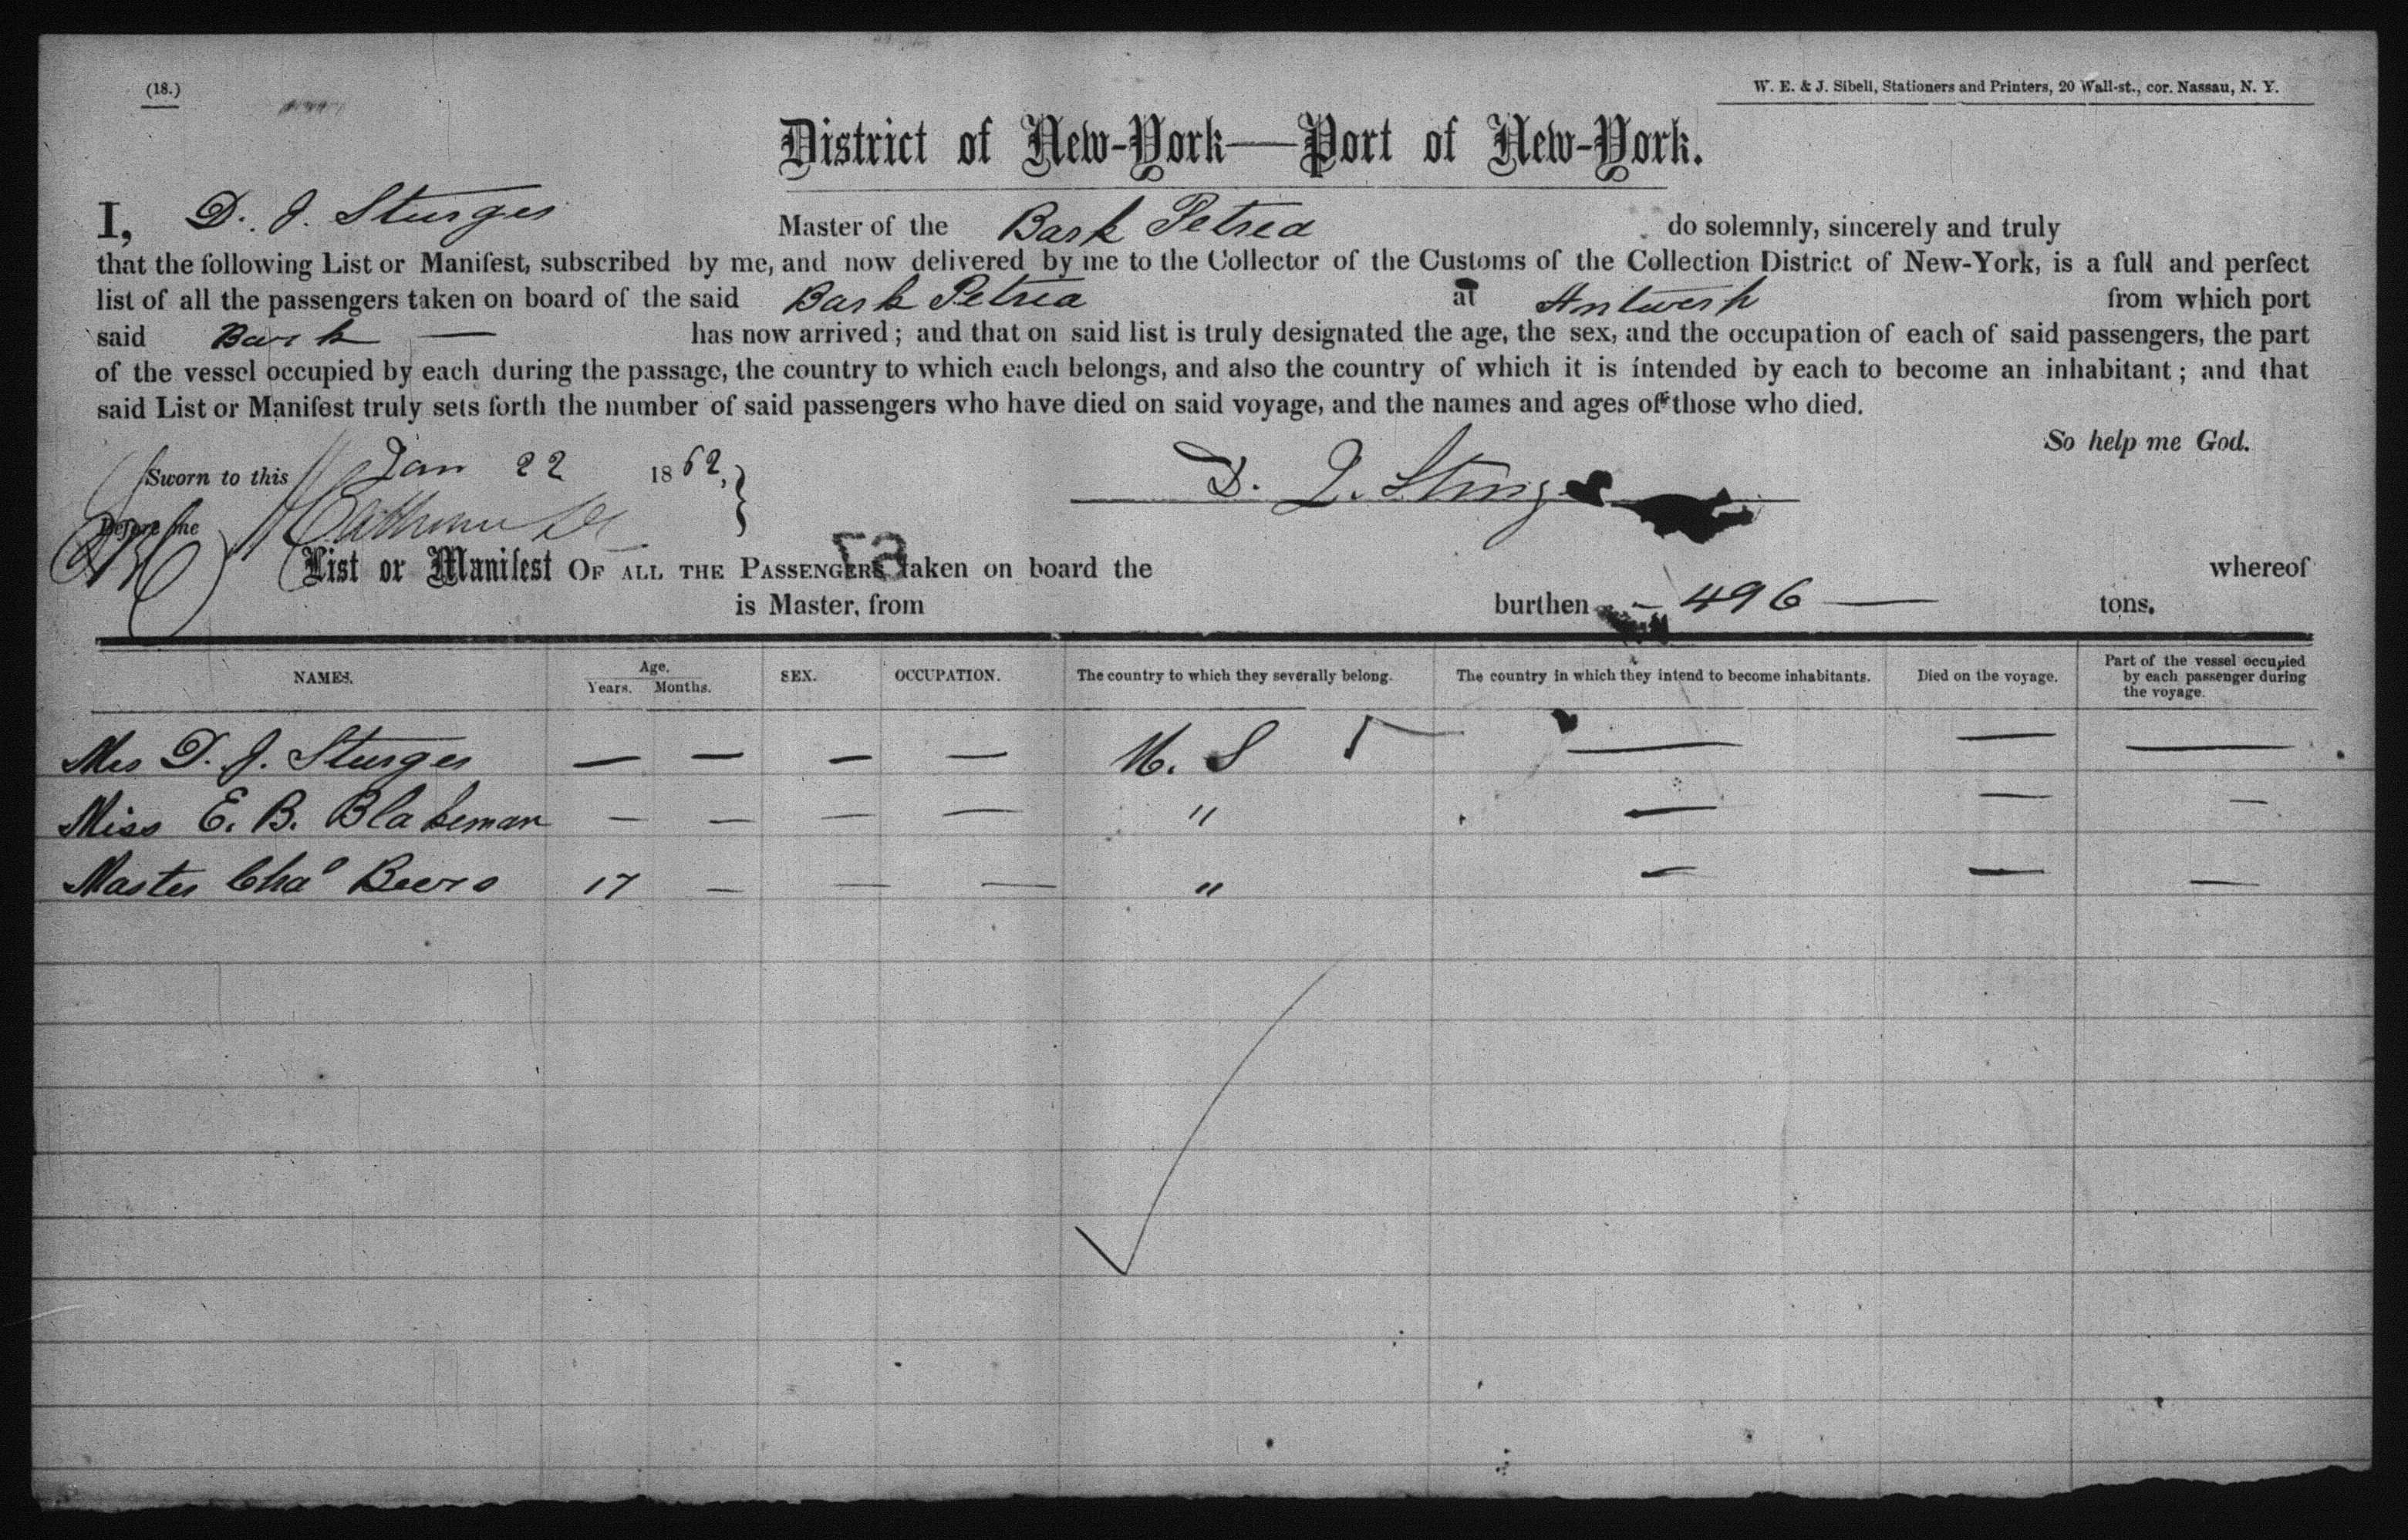 (18.)
W. E. & J. Sibell, Stationers and Printers, 20 Wall-st., cor. Nassau, N. Y.
District of New-York—Port of New-York.
I, D. J. Sturges Master of the Bark Petrea do solemnly, sincerely and truly
that the following List or Manifest, subscribed by me, and now delivered by me to the Collector of the Customs of the Collection District of New-York, is a full and perfect
list of all the passengers taken on board of the said Bark Petrea at Antwerp from which port
said Bark — has now arrived; and that on said list is truly designated the age, the sex, and the occupation of each of said passengers, the part
of the vessel occupied by each during the passage, the country to which each belongs, and also the country of which it is intended by each to become an inhabitant; and that
said List or Manifest truly sets forth the number of said passengers who have died on said voyage, and the names and ages of those who died.
So help me God.
Sworn to this Jan 22 1862,
D. J. Sturges
Before me
List or Manifest OF ALL THE PASSENGERS taken on board the whereof
is Master, from burthen — 496 — tons.
NAMES. Age. Years. Months. SEX. OCCUPATION. The country to which they severally belong. The country in which they intend to become inhabitants. Died on the voyage. Part of the vessel occupied by each passenger during the voyage.
Mrs D. J. Sturges — — — — U. S — — —
Miss E. B. Blakeman — — — — " — — —
Master Chaˢ Beers 17 — — — " — — —